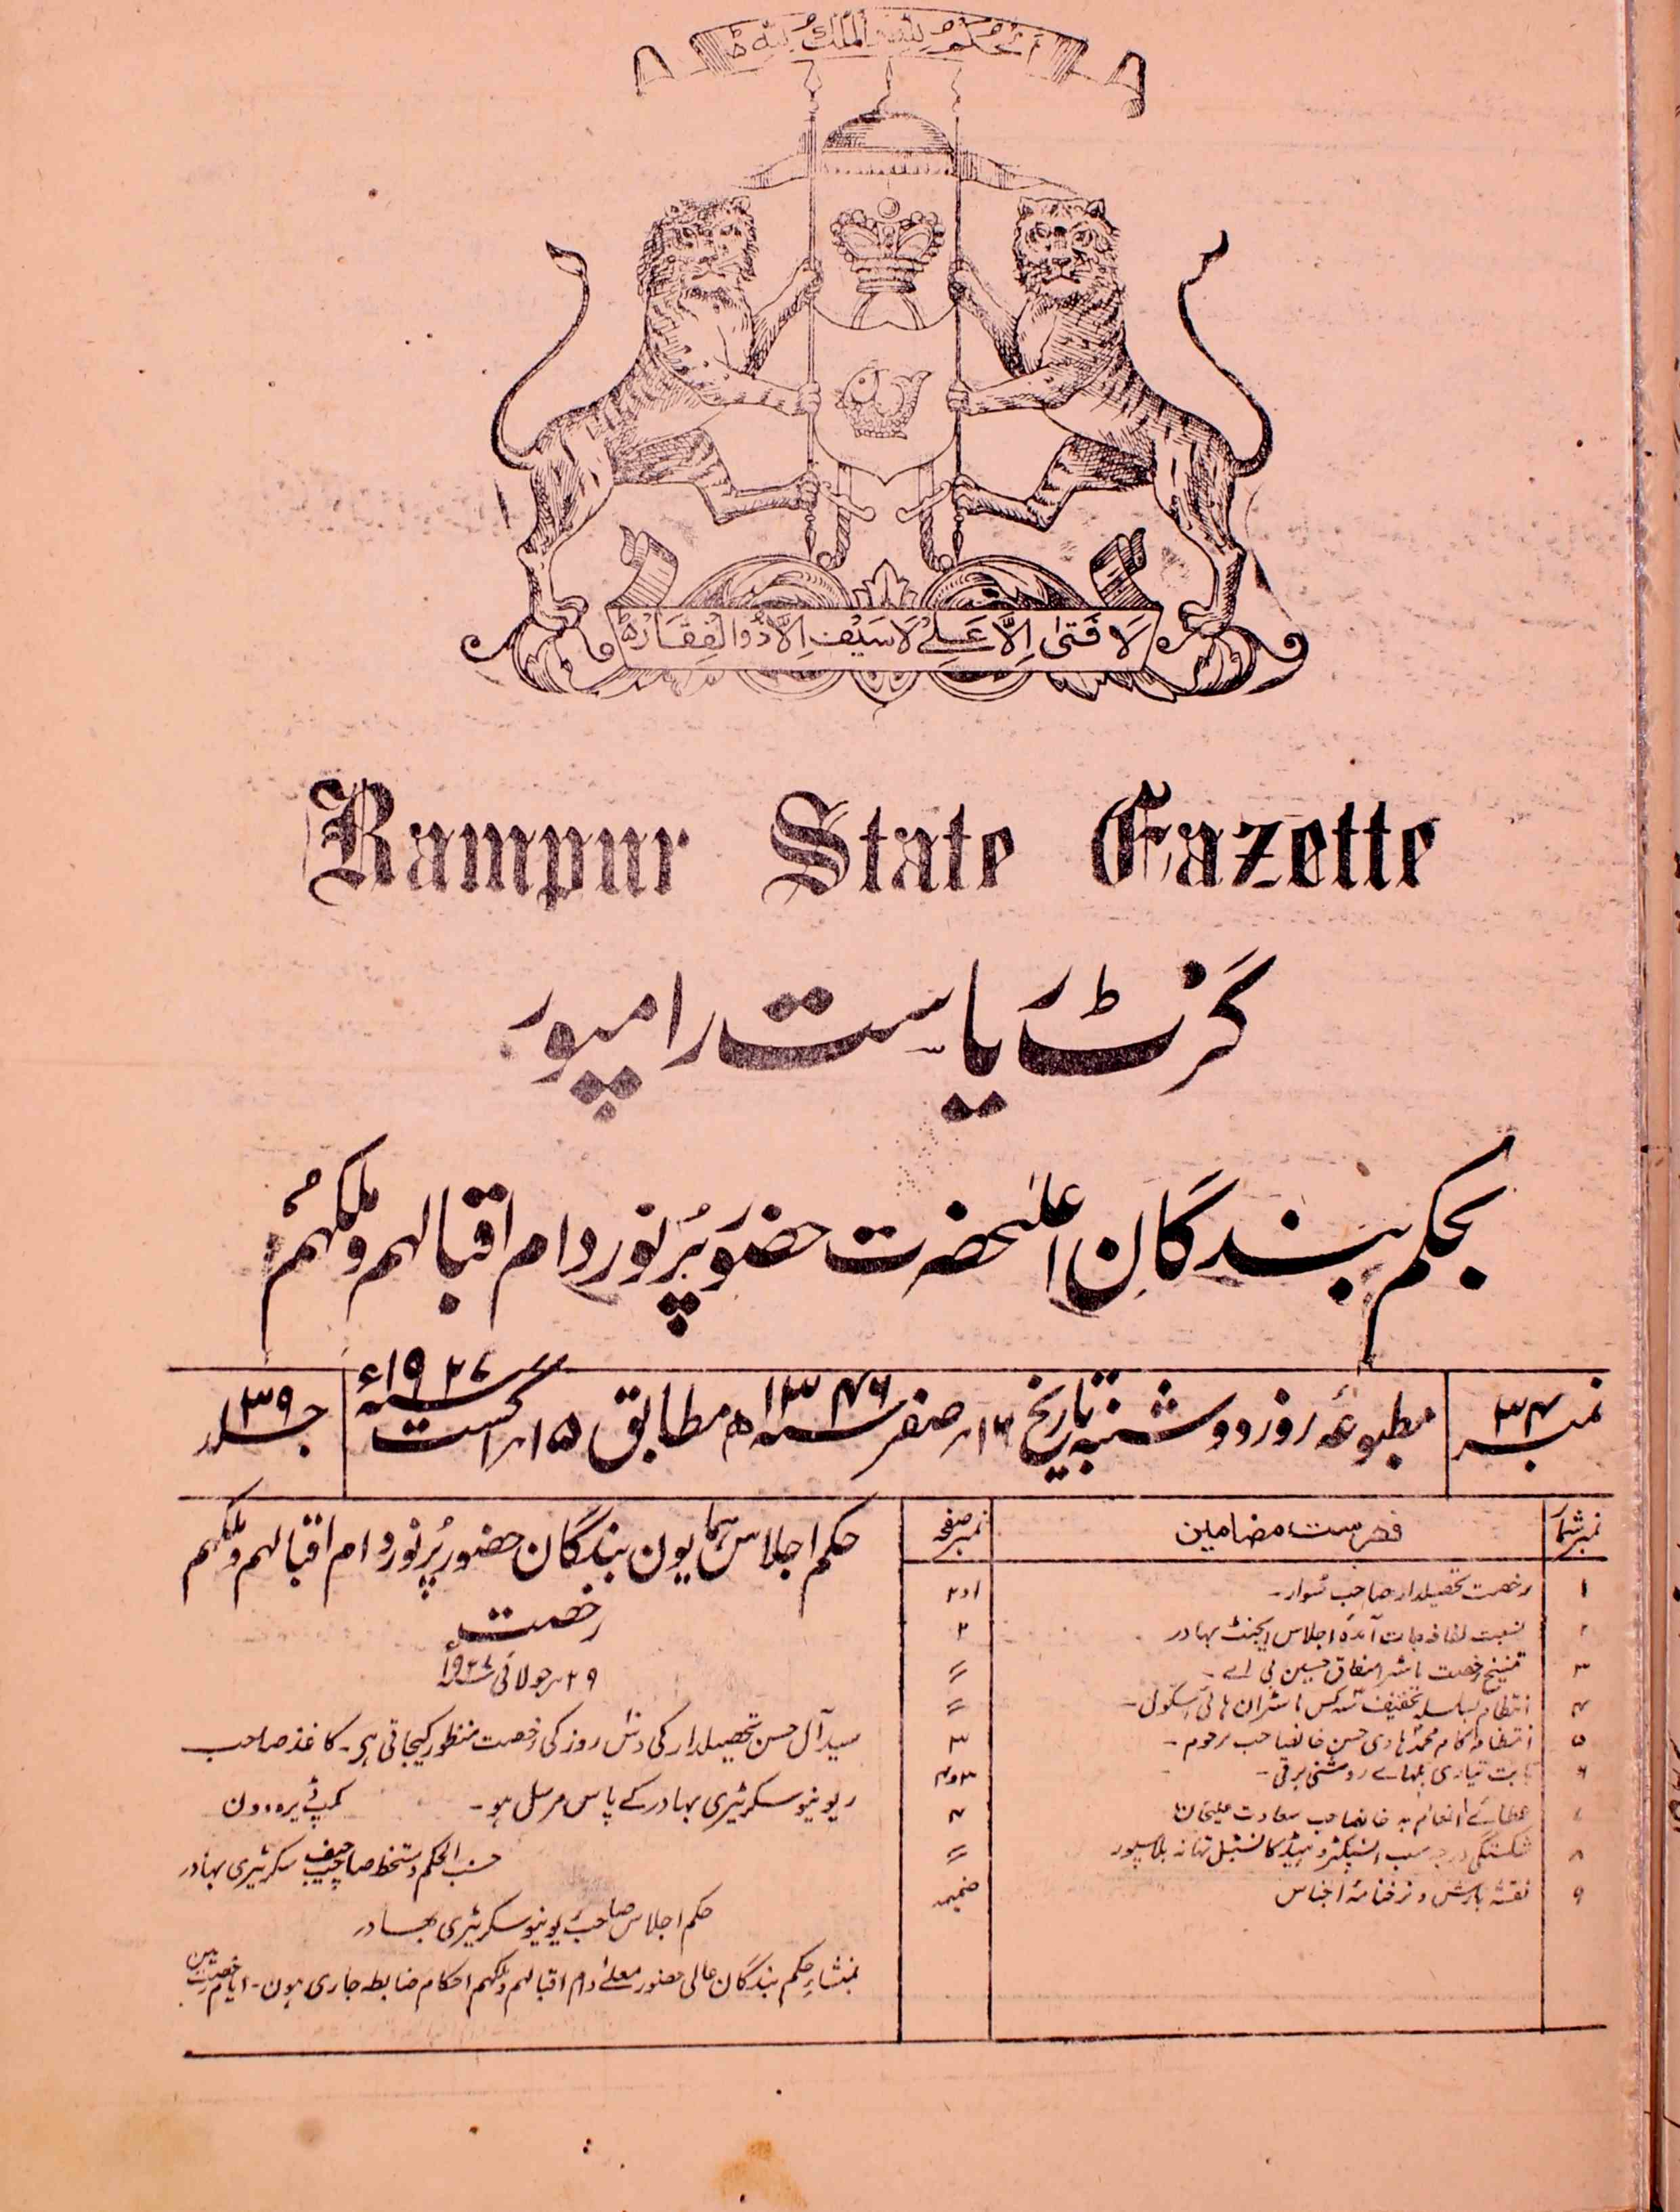 الحكم لله الملك لله
لا فتى الا علي لا سيف الا ذو الفقار
Rampur State Gazette
گزٹ ریاست رامپور
بحکم بندگان اعلیٰحضرت حضور پُرنور دام اقبالہم وملکہم
نمبر ۳۴
مطبوعہ روز دو شنبہ بتاریخ ۱۶ صفر سنہ ۱۳۴۶ھ مطابق ۱۵ اگست سنہ ۱۹۲۷ء
جلد ۳۹
نمبر شمار فہرست مضامین نمبر صفحہ
۱ رخصت تحصیلدار صاحب سوار۔ ۱و۲
۲ نسبت لفافہ جات آمدہ اجلاس ایجنٹ بہادر ۲
۳ تنسیخ رخصت ماسٹر اشفاق حسین بی اے۔ 〃
۴ انتظام بسلسلہ تخفیف کس ماسٹران ہائی اسکول۔ 〃
۵ انتظام کام محمد ہادی حسن خانصاحب مرحوم۔ ۳
۶ بابت تیاری بلہائے روشنی برقی۔ ۳و۴
۷ عطائے انعام بہ خانصاحب سعادت علیخان ۴
۸ شکستگی درجہ سب انسپکٹر و ہیڈ کانسٹبل تھانہ بلاسپور 〃
۹ نقشہ بارش و نرخنامہ اجناس ضمیمہ
حکم اجلاس ہمایون بندگان حضور پُرنور دام اقبالہم وملکہم
رخصت
۲۹ جولائی سنہ ۱۹۲۷ء
سید آل حسن تحصیلدار کی دس روز کی رخصت منظور کیجاتی ہے۔ کاغذ صاحب
ریونیو سکرٹیری بہادر کے پاس مرسل ہو۔ کمپ ڈیرہ دون
حسب الحکم دستخط صاحب چیف سکرٹیری بہادر
حکم اجلاس صاحب ریونیو سکرٹیری بہادر
بمنشاء حکم بندگان عالی حضور معلے دام اقبالہم وملکہم احکام ضابطہ جاری ہون۔ ایام رخصت مین